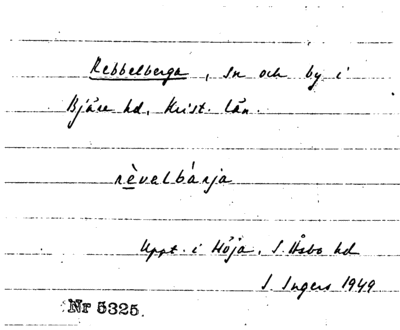 Rebbelberga, sn och by i
Bjäre hd, Krist. län.
rèvelbárja
Uppt. i Höja, S. Åsbo hd
I. Ingers 1949
Nr 5325.